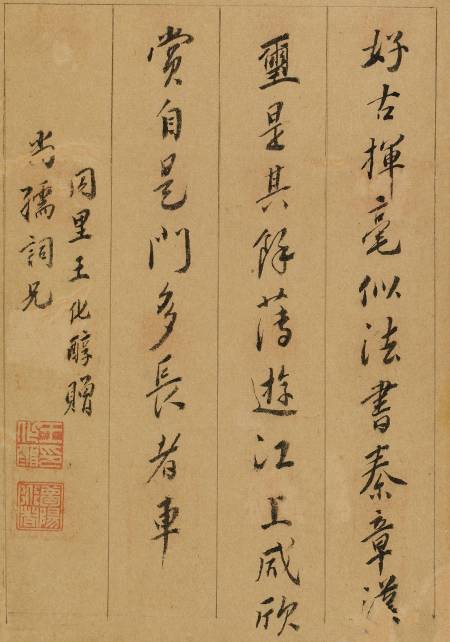 好古揮毫似法書秦章漢
璽是其餘薄遊江上咸欣
賞自是門多長者車
同里王化醇贈
尚孺詞兄
王化醇印